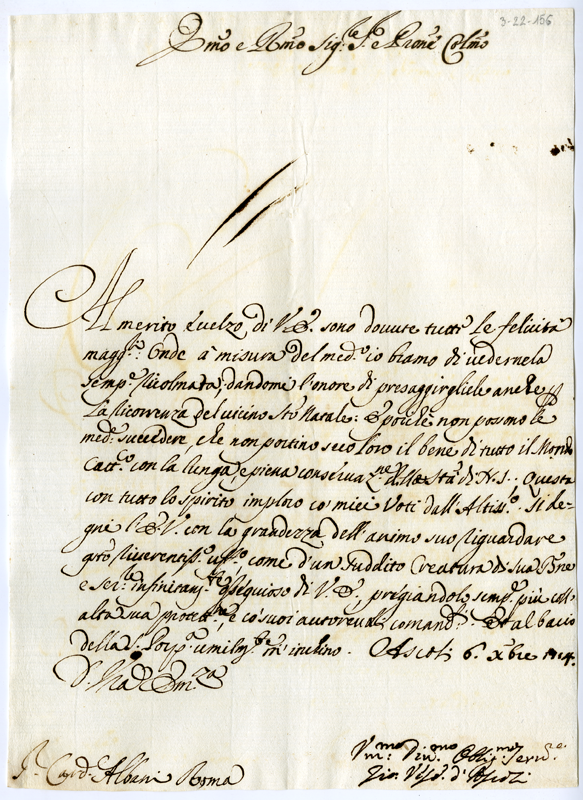 3-22-156
Em̃o e Rm̃o Sig.re S.re e Prone Colmo
Al merito eccelso di V.E. sono dovute tutte le felicità
magg.ri: Onde à misura del med.o io bramo di vedernela
semp.e ricolmata, dandomi l'onore di presaggirgliele anche p
La Ricorrenza del vicino Sto Natale: E poiche non possono le
med.e succedere, che non portino seco loro il bene di tutto il Mondo
Catt.co con la lunga, e piena conservaz.ne della Stà di N.S. Questa
con tutto lo spirito imploro co' miei Voti dall'Altiss.o Si de-
gni l'E.V. con la grandezza dell'animo suo riguardare
q.to riverentiss.o uff.o, come d'un suddito Creatura di Sua Bne
e Ser.e infinitam.te ossequioso di V.E., pregiandolo semp.e più coll'
alta sua protett.ne, e co' suoi autorevoli comandi. Et al bacio
della S. Porp.a umilm.te m'inchino. Ascoli 6. Xbre 1714.
D. V.ra Em.za
S.r Card. Albani Roma
Vm.mo Div.mo Oblig.mo Serv.re
Gio. Vesc.o d'Ascoli